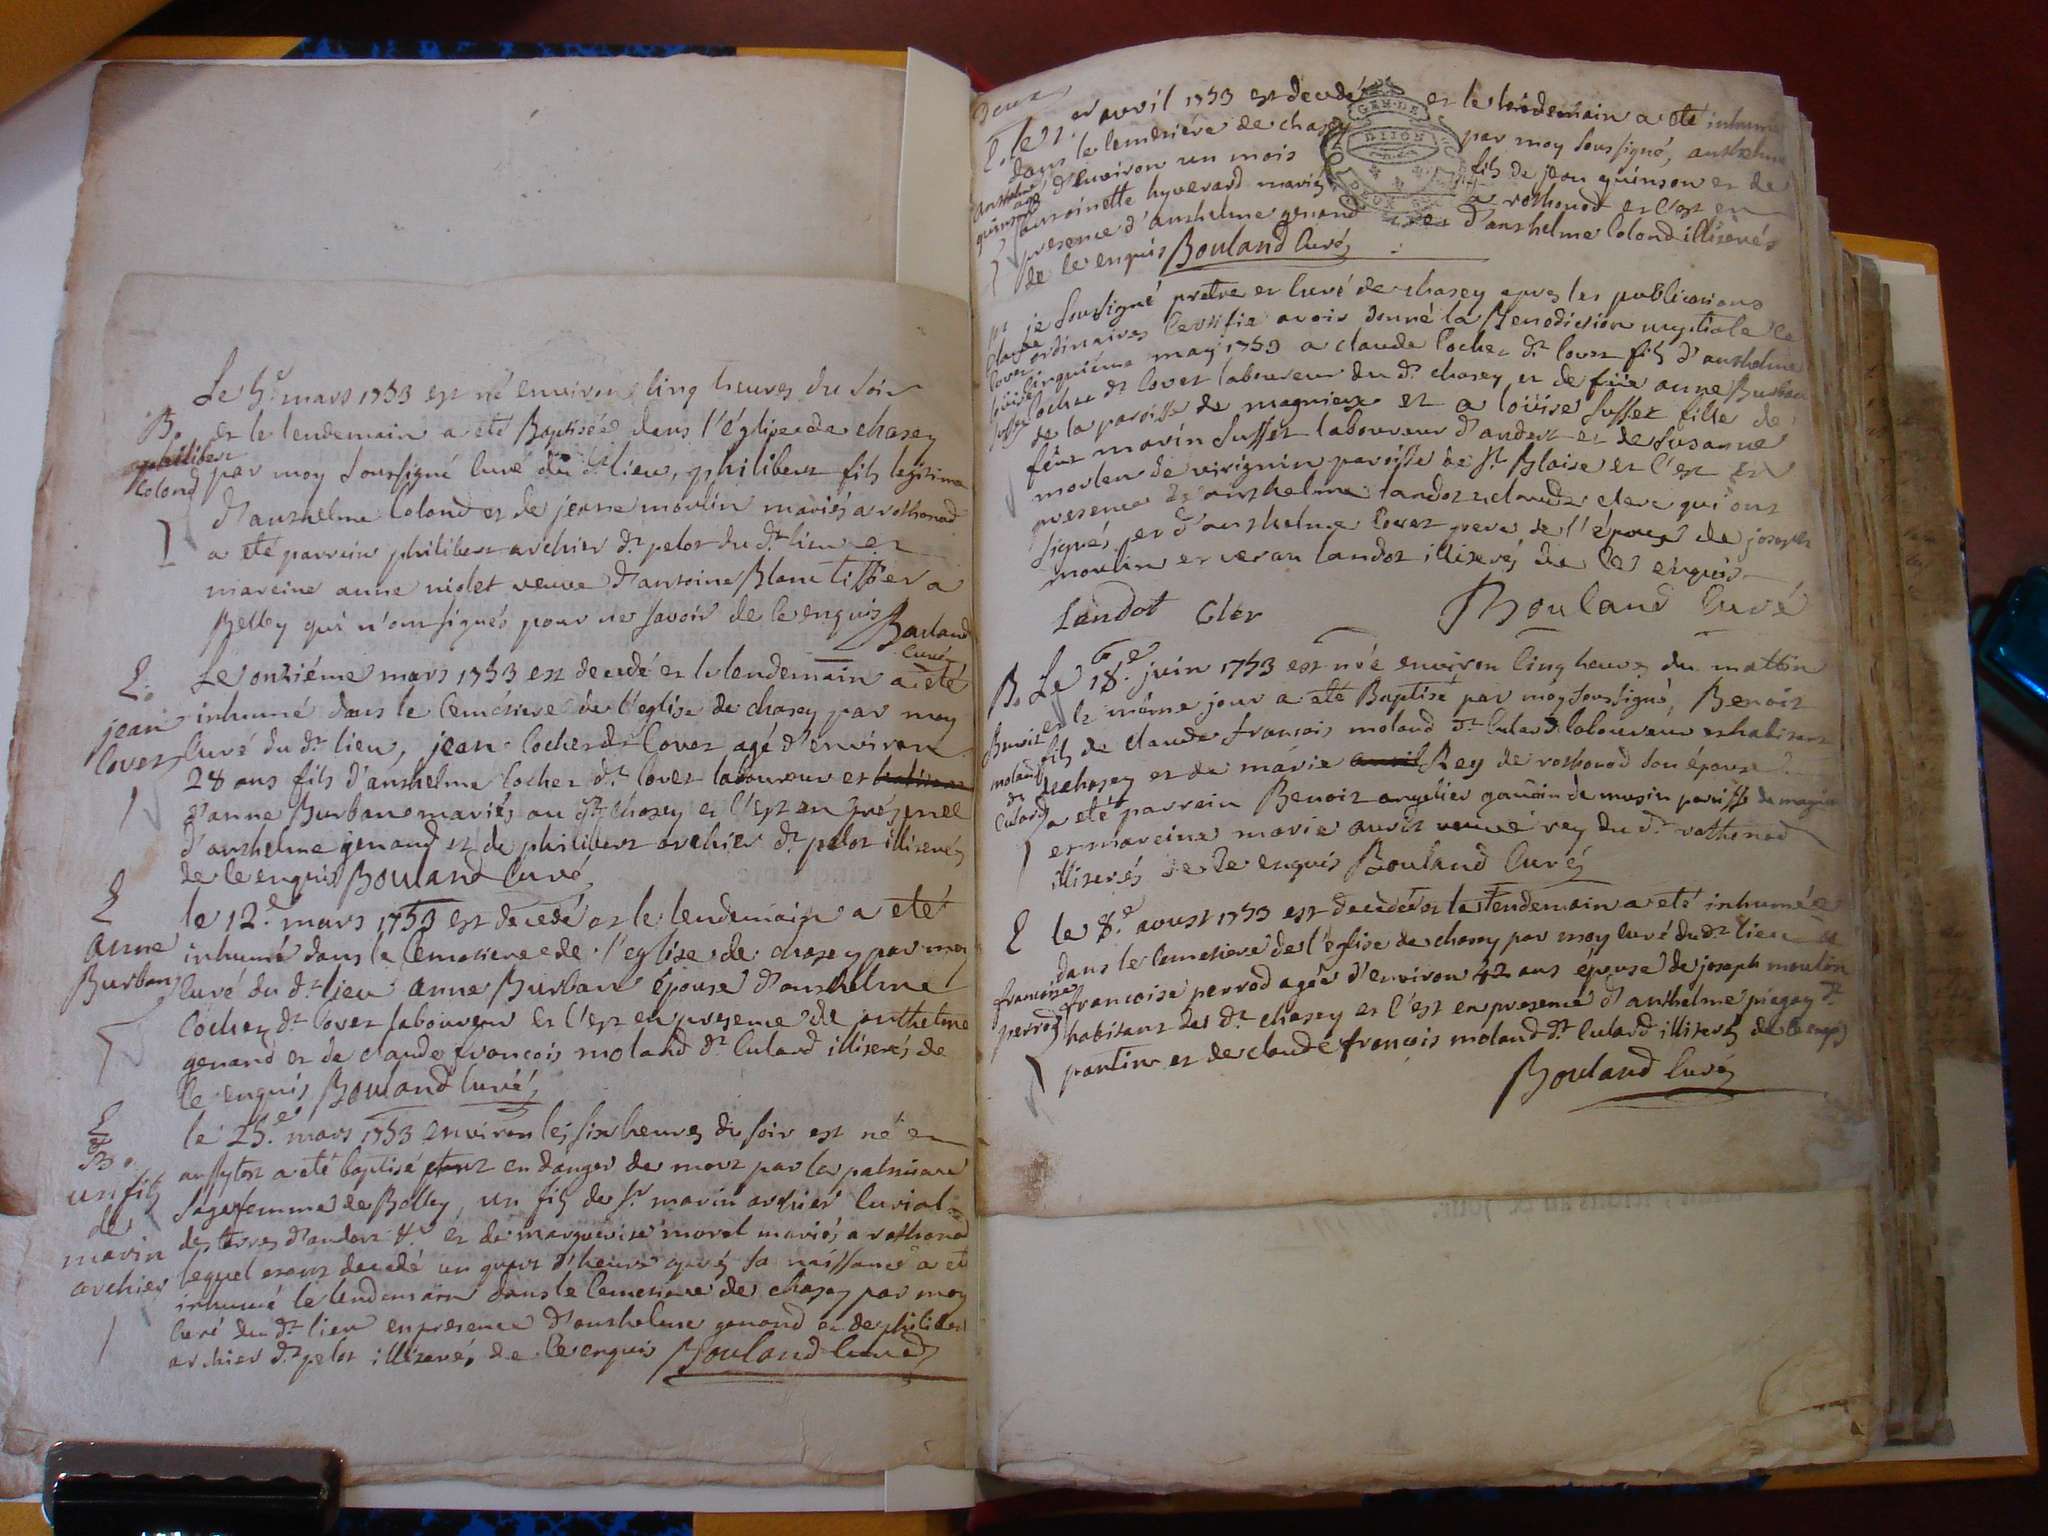 Le 5.e mars 1753 est né environ cinq heures du soir
B. et le lendemain a eté Baptisée dans l'église de chasey
philibert Colond par moy soussigné curé du dt lieu, philibert fils legitime
d'anthelme Colond et de jeane moulin mariés a rothonod
a eté parrein philibert archier dt pelot du dt lieu et
mareine anne niolet veuve d'antoine Blanc tissier a
Belley qui n'ont signés pour ne savoir de ce enquis Bouland
curé
E. Le onziéme mars 1753 est decedé et le lendemain a eté
jean inhumé dans le Cemetiere de l'église de chasey par moy
Covet curé du dt lieu, jean Cochet dt Covet agé d'environ
28 ans fils d'anthelme Cochet dt Covet laboureur et
d'anne Burban mariés au dt chasey et c'est en présence
d'anthelme genand et de philibert archier dt pelot illiterés
de ce enquis Bouland Curé
E le 12.e mars 1753 est decedé et le lendemain a eté
anne inhumé dans le Cemetiere de l'eglise de chasey par moy
Burban curé du dt lieu anne Burban épouse d'anthelme
Cochet dt Covet laboureur et c'est en presence de anthelme
genand et de claude francois moland dt Culard illiterés de
ce enquis Bouland Curé
E le 25.e mars 1753 environ les six heures du soir est né et
et B. aussytost a eté baptisé etant en danger de mort par la
un fils sagefemme de Belley, un fils de Sr marin archier Curial
de des terres d'andert &.e et de marguerite morel mariés a rothonod
marin lequel etant decedé un quart d'heure aprés sa naissance a eté
archier inhumé le lendemain dans le Cemetiere de chasey par moy
curé du dt lieu en presence d'anthelme genand et de philibert
archier dt pelot illiterés de ce enquis Bouland Curé
Deux
E. le 1.er avril 1753 est decedé et le lendemain a eté inhumé
dans le Cemetiere de chasey par moy soussigné, anthelme
anthelme quinson agé d'environ un mois fils de jean quinson et de
antoinette hyverard mariés a rothonod et c'est en
presence d'anthelme genand et d'anthelme Colond illiterés
de ce enquis Bouland Curé
GEN. DE DIJON
DEUX
M je soussigné pretre et curé de chasey apres les publications
claude ordinaires Certifie avoir donné la Benediction nuptiale le
Covet cinquième may 1753 a claude Cochet dt Covet fils d'anthelme
Cochet dt Covet laboureur du dt chasey et de füe anne Burban
de la paroisse de magnieux et a loüise Suffet fille de
feut marin Suffet laboureur d'andert et de Susanne
morlen de virignin paroisse de St Blaise et c'est en
presence d'anthelme landot claude clerc qui ont
signés et d'anthelme Covet pere de l'époux de joseph
moulin et veran landot illiterés de ce enquis
Landot Cler Bouland Curé
B. Le 18.e juin 1753 est né environ cinq heures du mattin
et le méme jour a eté Baptisé par moy soussigné, Benoit
Benoit fils de claude francois moland dt Culard laboureur et habitant
moland de chasey et de marie Rey de rothonod son épouse
dt Culard a eté parrein Benoit angelier de musin paroisse de magnieu
et mareine marie veuve rey du dt rothonod
illiterés de ce enquis Bouland Curé
E le 8.e aoust 1753 est decedée et le lendemain a eté inhumée
dans le Cemetiere de l'église de chasey par moy curé du dt lieu
francoise francoise perrod agée d'environ 42 ans épouse de joseph moulin
perrod habitant des dt chasey et c'est en presence d'anthelme piegay dt
pantin et de claude françois moland dt Culard illiterés de ce enquis
Bouland Curé